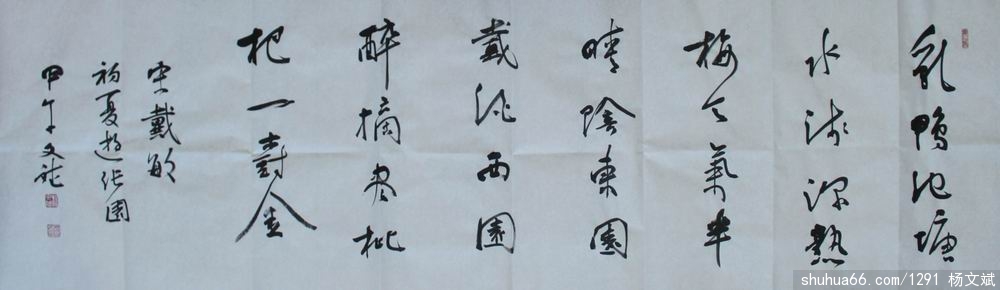 乳鸭池塘
水浅深熟
梅天氣半
晴陰東園
戴酒西園
醉摘尽枇
杷一樹金
宋戴敏
初夏遊张園
甲午文斌
shuhua66.com/1291 杨文斌